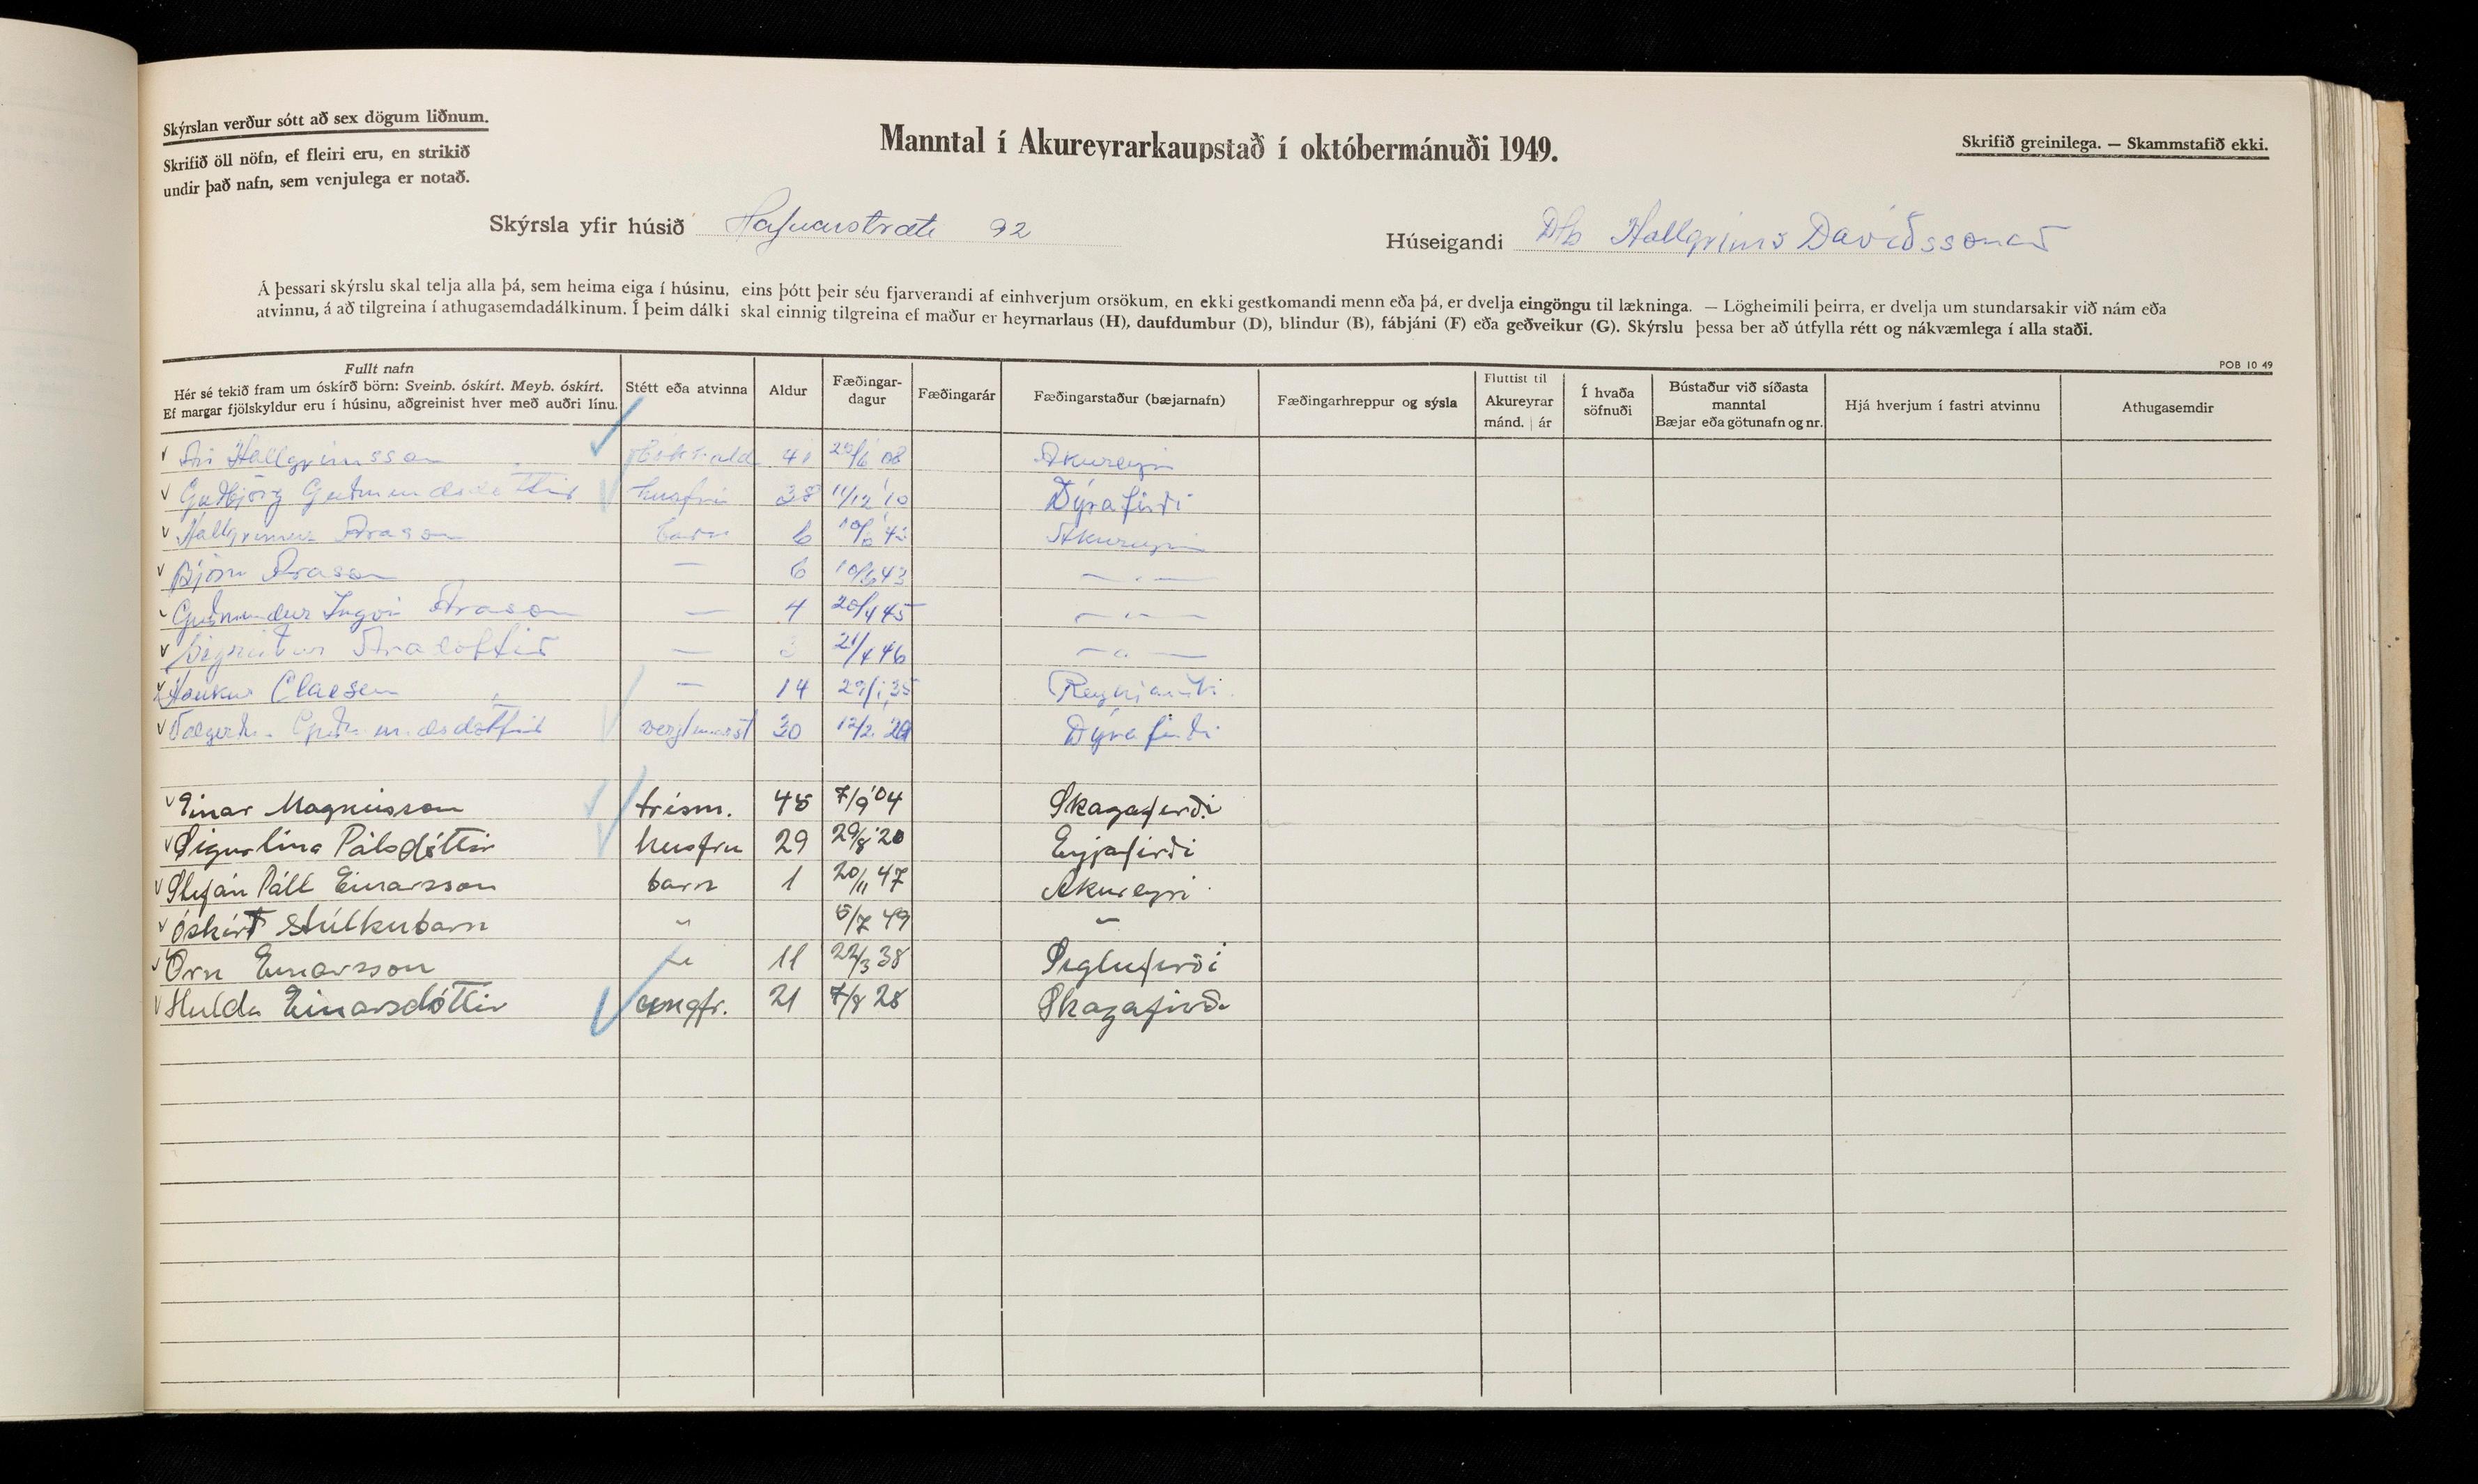 Skýrslan verður sótt að sex dögum liðnum.
Skrifið öll nöfn, ef fleiri eru, en strikið
undir það nafn, sem venjulega er notað.
Manntal í Akureyrarkaupstað í októbermánuði 1949.
Skrifið greinilega. — Skammstafið ekki.
Skýrsla yfir húsið Hafnarstræti 92
Húseigandi Db Hallgríms Davíðssonar
Á þessari skýrslu skal telja alla þá, sem heima eiga í húsinu, eins þótt þeir séu fjarverandi af einhverjum orsökum, en ekki gestkomandi menn eða þá, er dvelja eingöngu til lækninga. — Lögheimili þeirra, er dvelja um stundarsakir við nám eða
atvinnu, á að tilgreina í athugasemdadálkinum. Í þeim dálki skal einnig tilgreina ef maður er heyrnarlaus (H), daufdumbur (D), blindur (B), fábjáni (F) eða geðveikur (G). Skýrslu þessa ber að útfylla rétt og nákvæmlega í alla staði.
POB 10 49
Fullt nafn
Hér sé tekið fram um óskírð börn: Sveinb. óskírt. Meyb. óskírt.
Ef margar fjölskyldur eru í húsinu, aðgreinist hver með auðri línu.
Stétt eða atvinna
Aldur
Fæðingar-
dagur
Fæðingarár
Fæðingarstaður (bæjarnafn)
Fæðingarhreppur og sýsla
Fluttist til
Akureyrar
mánd. | ár
Í hvaða
söfnuði
Bústaður við síðasta
manntal
Bæjar eða götunafn og nr.
Hjá hverjum í fastri atvinnu
Athugasemdir
Ari Hallgrímsson 41 Akureyri
Guðbjörg Guðmundsdóttir húsfrú 38 11/12 '10 Dýrafirði
Hallgrímur Arason barn 6 Akureyri
Björn Arason — 6 10/6 43 — " —
Guðmundur Ingvi Arason — 4 20/4 45 — " —
Aradóttir — 21/4 46 — " —
Haukur Claesen — 14 29/1 35 Reykjavík
Valgerður Guðmundsdóttir 30 12/2
Dýrafirði
Einar Magnússon trésm. 45 7/9 '04 Skagafirði
Sigurlína Pálsdóttir husfru 29 29/8 '20 Eyjafirði
Stefán Páll Einarsson barn 1 20/11 47 Akureyri
Óskírt stúlkubarn " 5/7 49 "
Örn Einarsson " 11 22/3 38 Siglufirði
Hulda Einarsdóttir ungfr. 21 7/8 28 Skagafirði